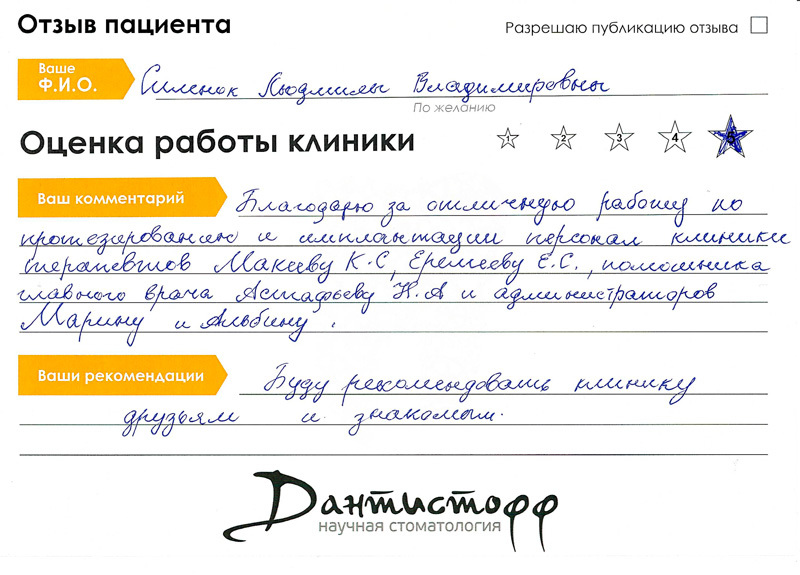 Отзыв пациента
Разрешаю публикацию отзыва
Ваше
Ф.И.О.
Силенок Людмилы Владимировны
По желанию
Оценка работы клиники
1 2 3 4 5
Ваш комментарий
Благодарю за отличную работу по
протезированию и имплантации персонал клиники
терапевтов Макееву К.С, Еремееву Е.С., помошника
главного врача Астафьеву Н.А и администраторов
Марину и Альбину.
Ваши рекомендации
Буду рекомендовать клинику
друзьям и знакомым.
Дантистофф
научная стоматология